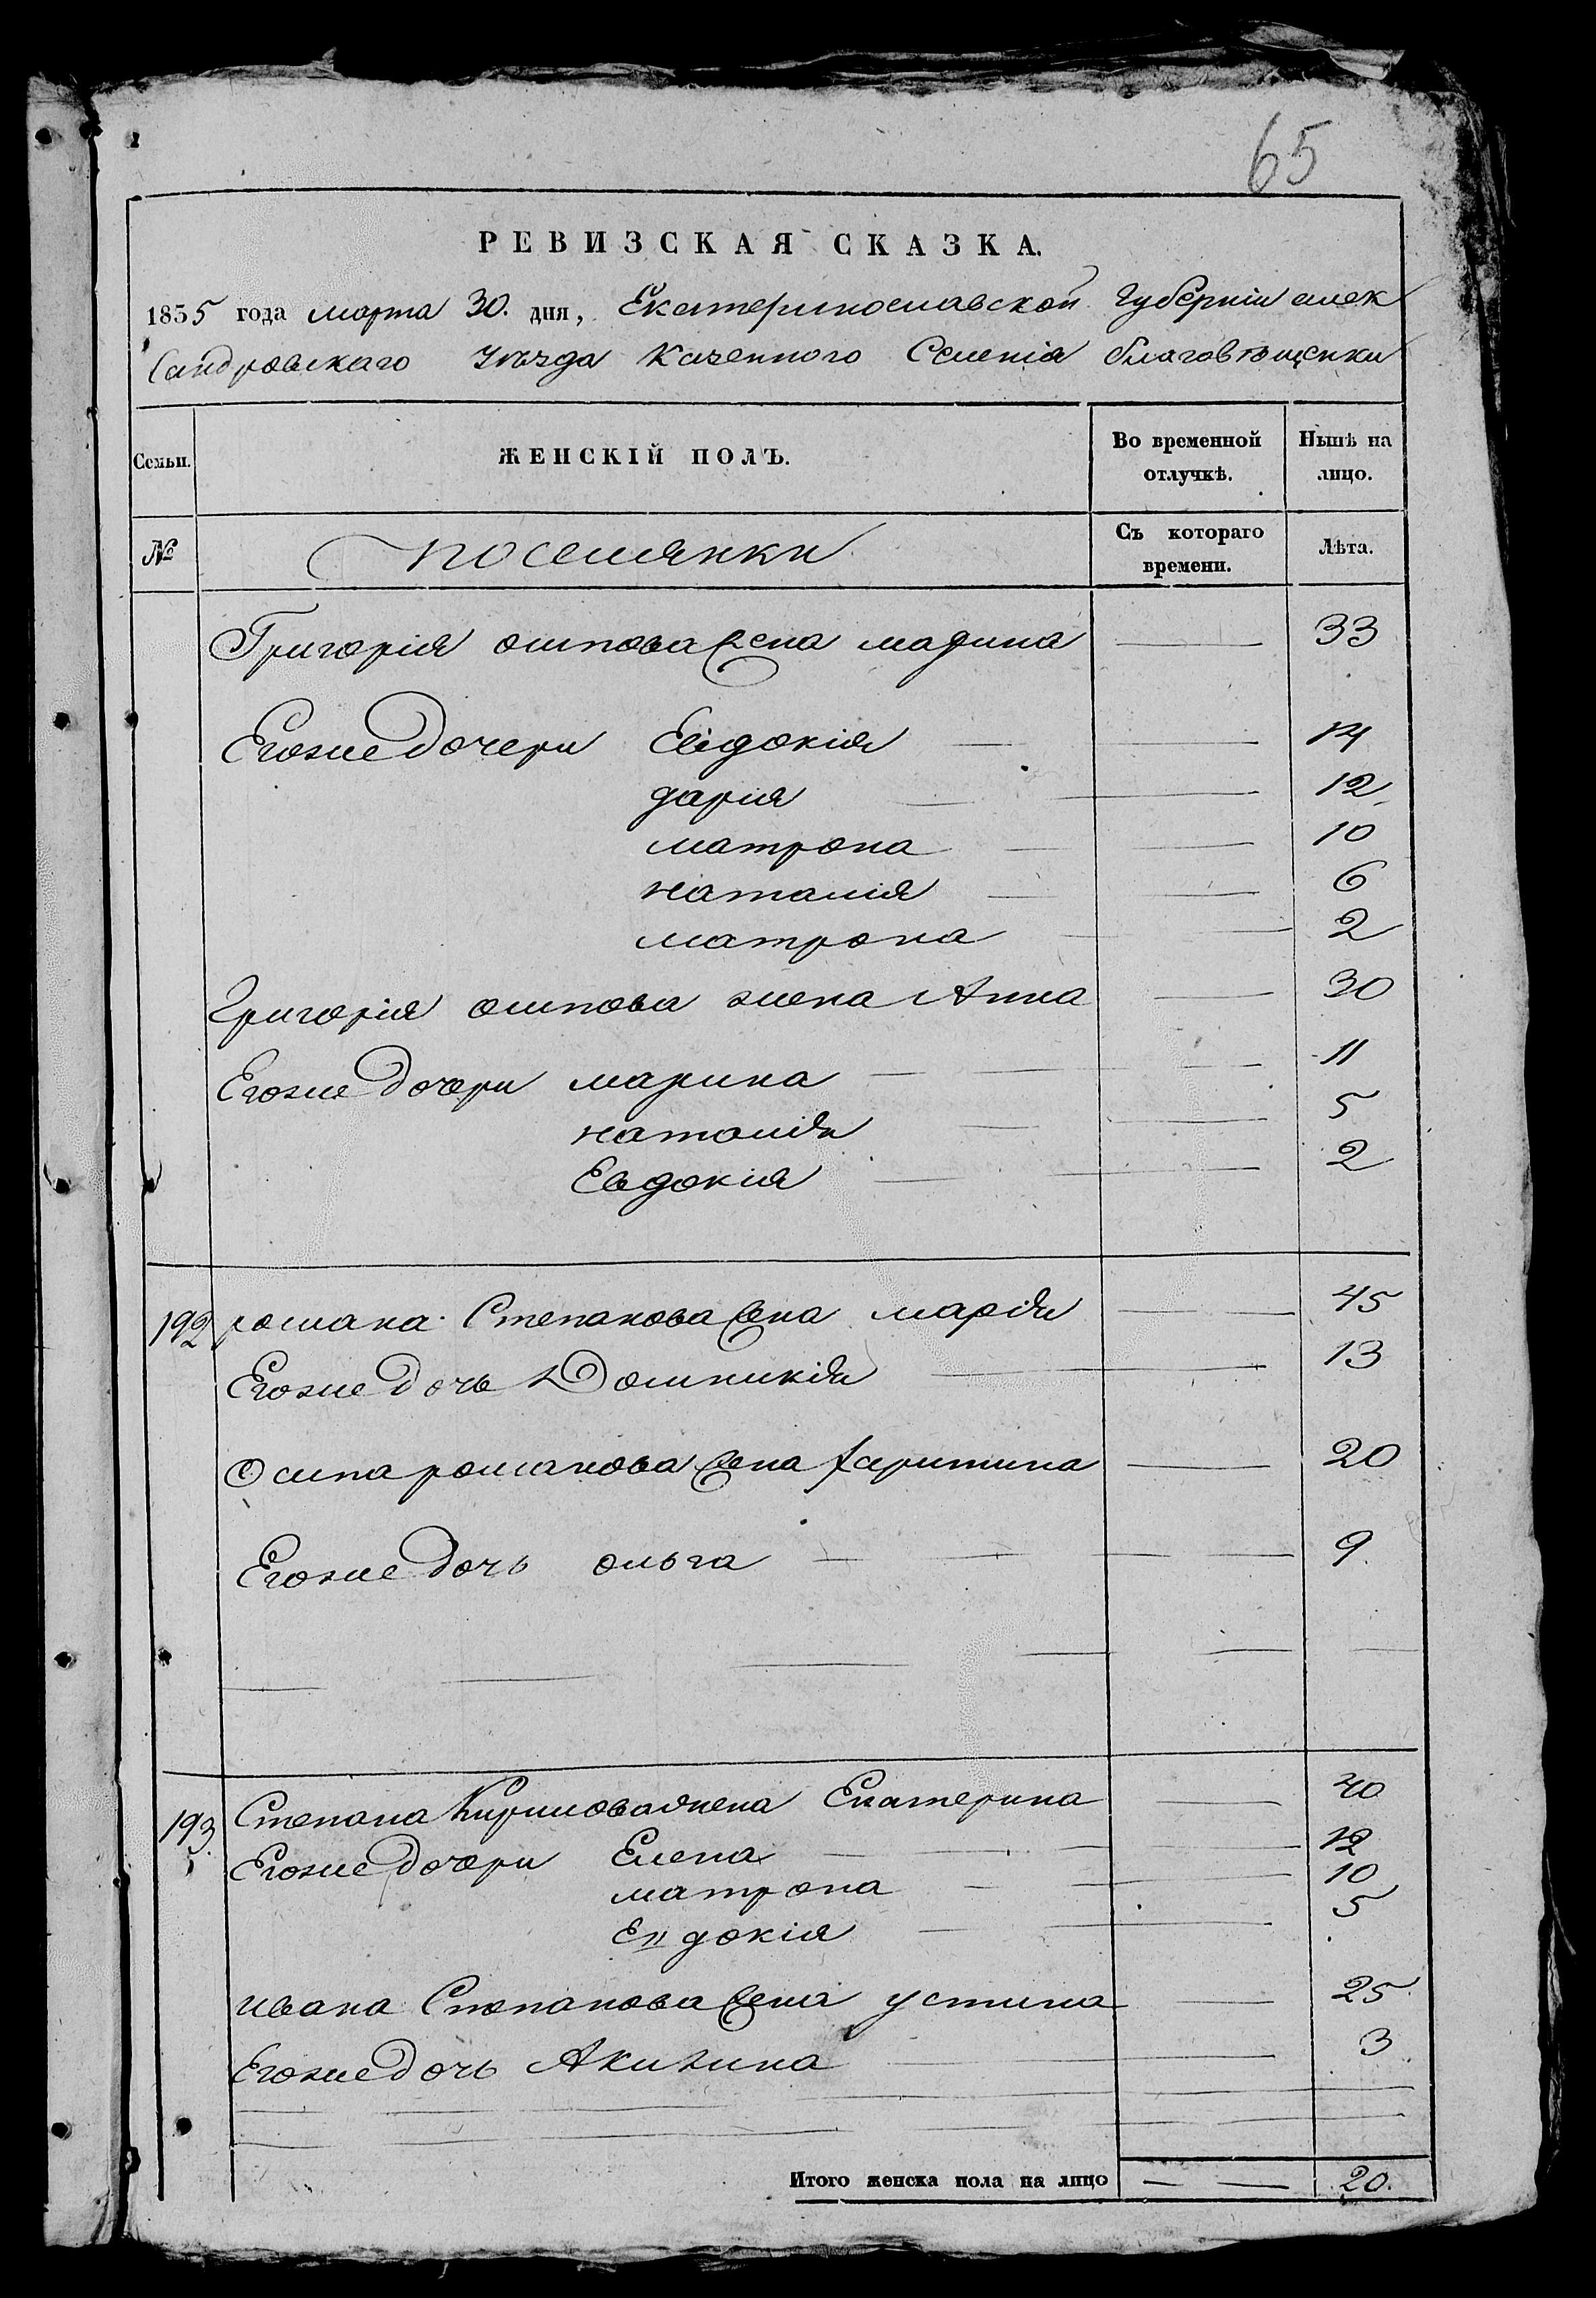 65
РЕВИЗСКАЯ СКАЗКА.
1835 года марта 30. дня, Екатеринославской Губерніи алек
Сандровскаго Уѣзда Казенного Селенія благовѣщенки
Семьи.
ЖЕНСКІЙ ПОЛЪ.
Во временной отлучкѣ.
Нынѣ на лицо.
№
поселянки
Съ котораго времени.
Лѣта.
Григорія осипова жена марина 33
Егоже дочери Евдокія 14
дарія 12
матрона 10
наталія 6
матрона 2
Григорія осипова жена Анна 30
Егоже дочери марина 11
наталія 5
Евдокія 2
192 романа Степанова жена марія 45
Егоже дочь Домникія 13
Осипа романова жена харитина 20
Егоже дочь ольга 9
193. Степана Кирилова жена Екатерина 40
Егоже дочери Елена 12
матрона 10
Евдокія 5
ивана Степанова жена устина 25
Егоже дочь Акилина 3
Итого женска пола на лицо 20.